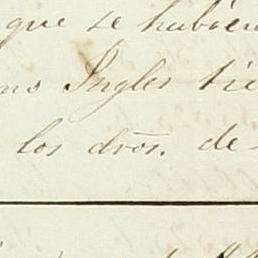 que se hubier
Ingles tie
los dros. de